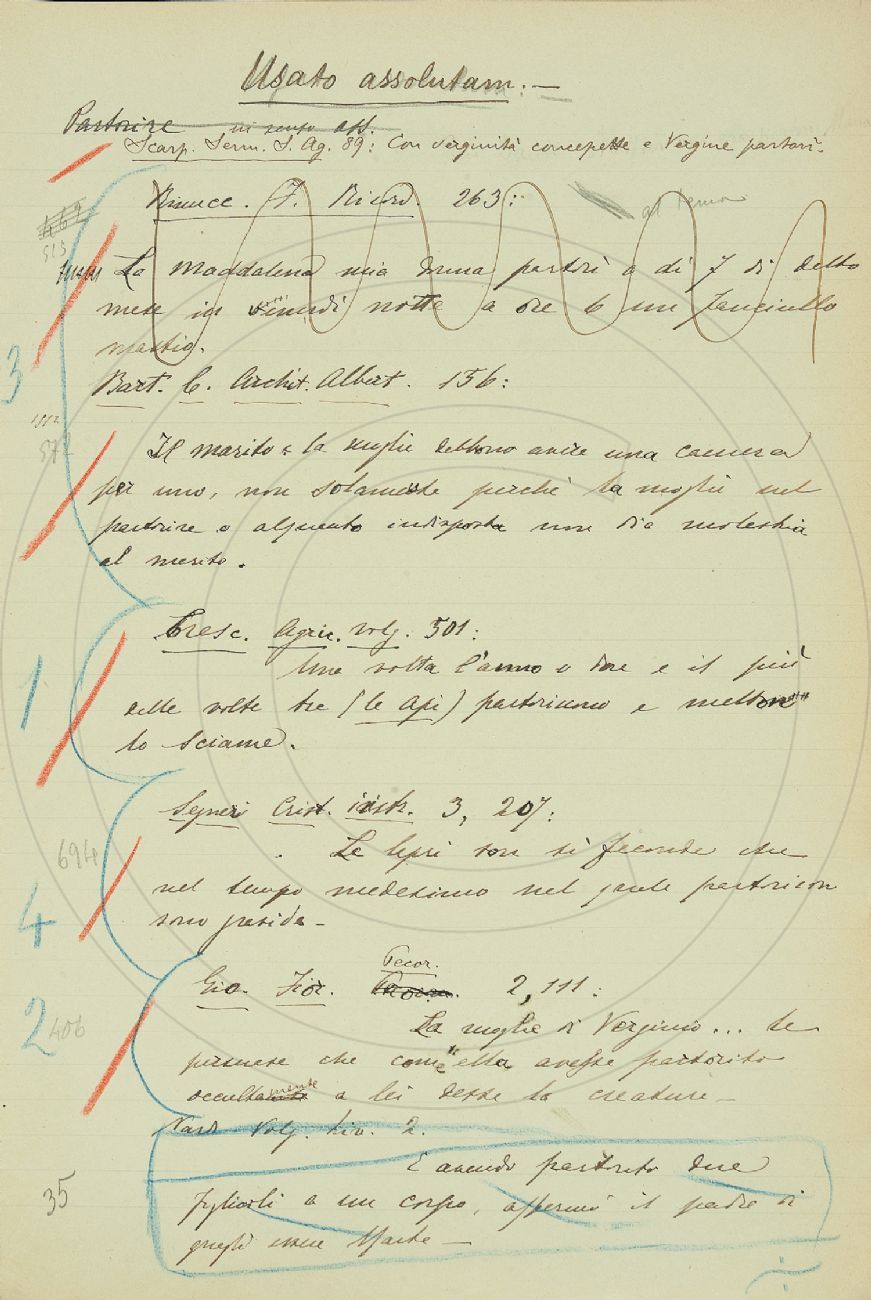 Usato assolutam. —
Partorire in senso ass.
Scarp. Serm. S. Ag. 89: Con verginità concepette e Vergine partorì.
Rinucc. F. Ricord. 263:
al tema
La Maddalena mia donna partorì a dì 7 di detto
mese in venerdì notte a ore 6 un fanciullo
mastio.
Bart. C. Archit. Albert. 156:
3
572
Il marito e la moglie debbono avere una camera
per uno, non solamente perchè la moglie nel
partorire o alquanto indisposta non dia molestia
al marito.
Cresc. Agric. volg. 501:
1
Una volta l'anno o due e il più
delle volte tre (le Api) partoriscono e mettono
lo sciame.
Segneri Crist. instr. 3, 207:
694
Le lepri son sì feconde che
nel tempo medesimo nel quale partoriscon
sono gravide —
4
Pecor.
Gio. Fior. 2, 111:
2
406
La moglie di Verginio... le
promese che come ella avesse partorito
occultamente a lei desse la creatura —
Nard. Volg. Liv. 2.
E avendo partorito due
35
figliuoli a un corpo, affermò il padre di
quegli essere Marte —